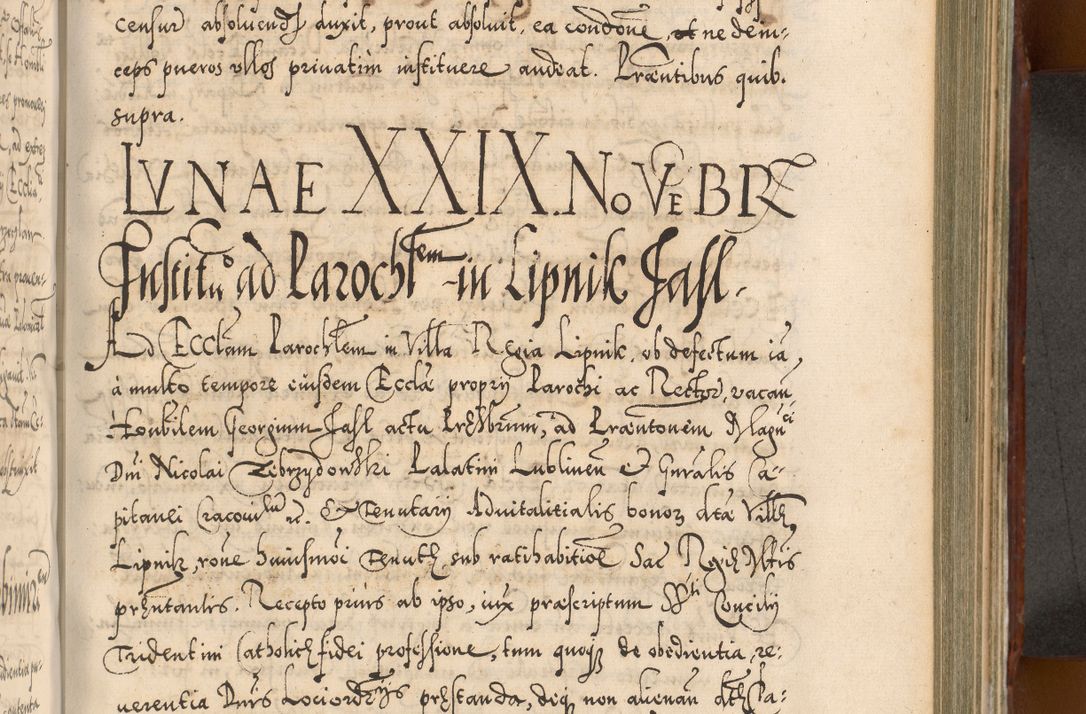 censur absolucndꝭ duxit, prout absoluit, ea condone, et ne dein:
ceps pueros vllos priuatim instituere audeat. Præntibus quib.
supra.
LVNAE XXIX. NoVEBR
Institu° ad Parochlem in Lipnik Jasl.
Ad Ecclam Parochlem in Villa Regia Lipnik, ob defectum ia,
à multo tempore eiusdem Ecclæ proprij Parochi ac Rectors, vacan,
Honbilem Georgium Jasl actu Præsbrum, ad Præntonem Magci
Dni Nicolai Zebrzydowski Palatini Lublinen & Gnralis Ca:
pitanei Cracouien &c. & Tenutarij Aduitalitialis bonoꝝ dtæ Villæ
Lipnik, rone huiusmoi Tenutæ, sub ratihabitioe Sac Regiæ Mttis
præntantis. Recepto prius ab ipso, iux præscriptum Sti Concilij
Tridentini Catholicæ fidei professione, tum quoqꝫ de obedientia, re:
uerentia Dnis Lociordrijs præstanda, deqꝫ non alienan